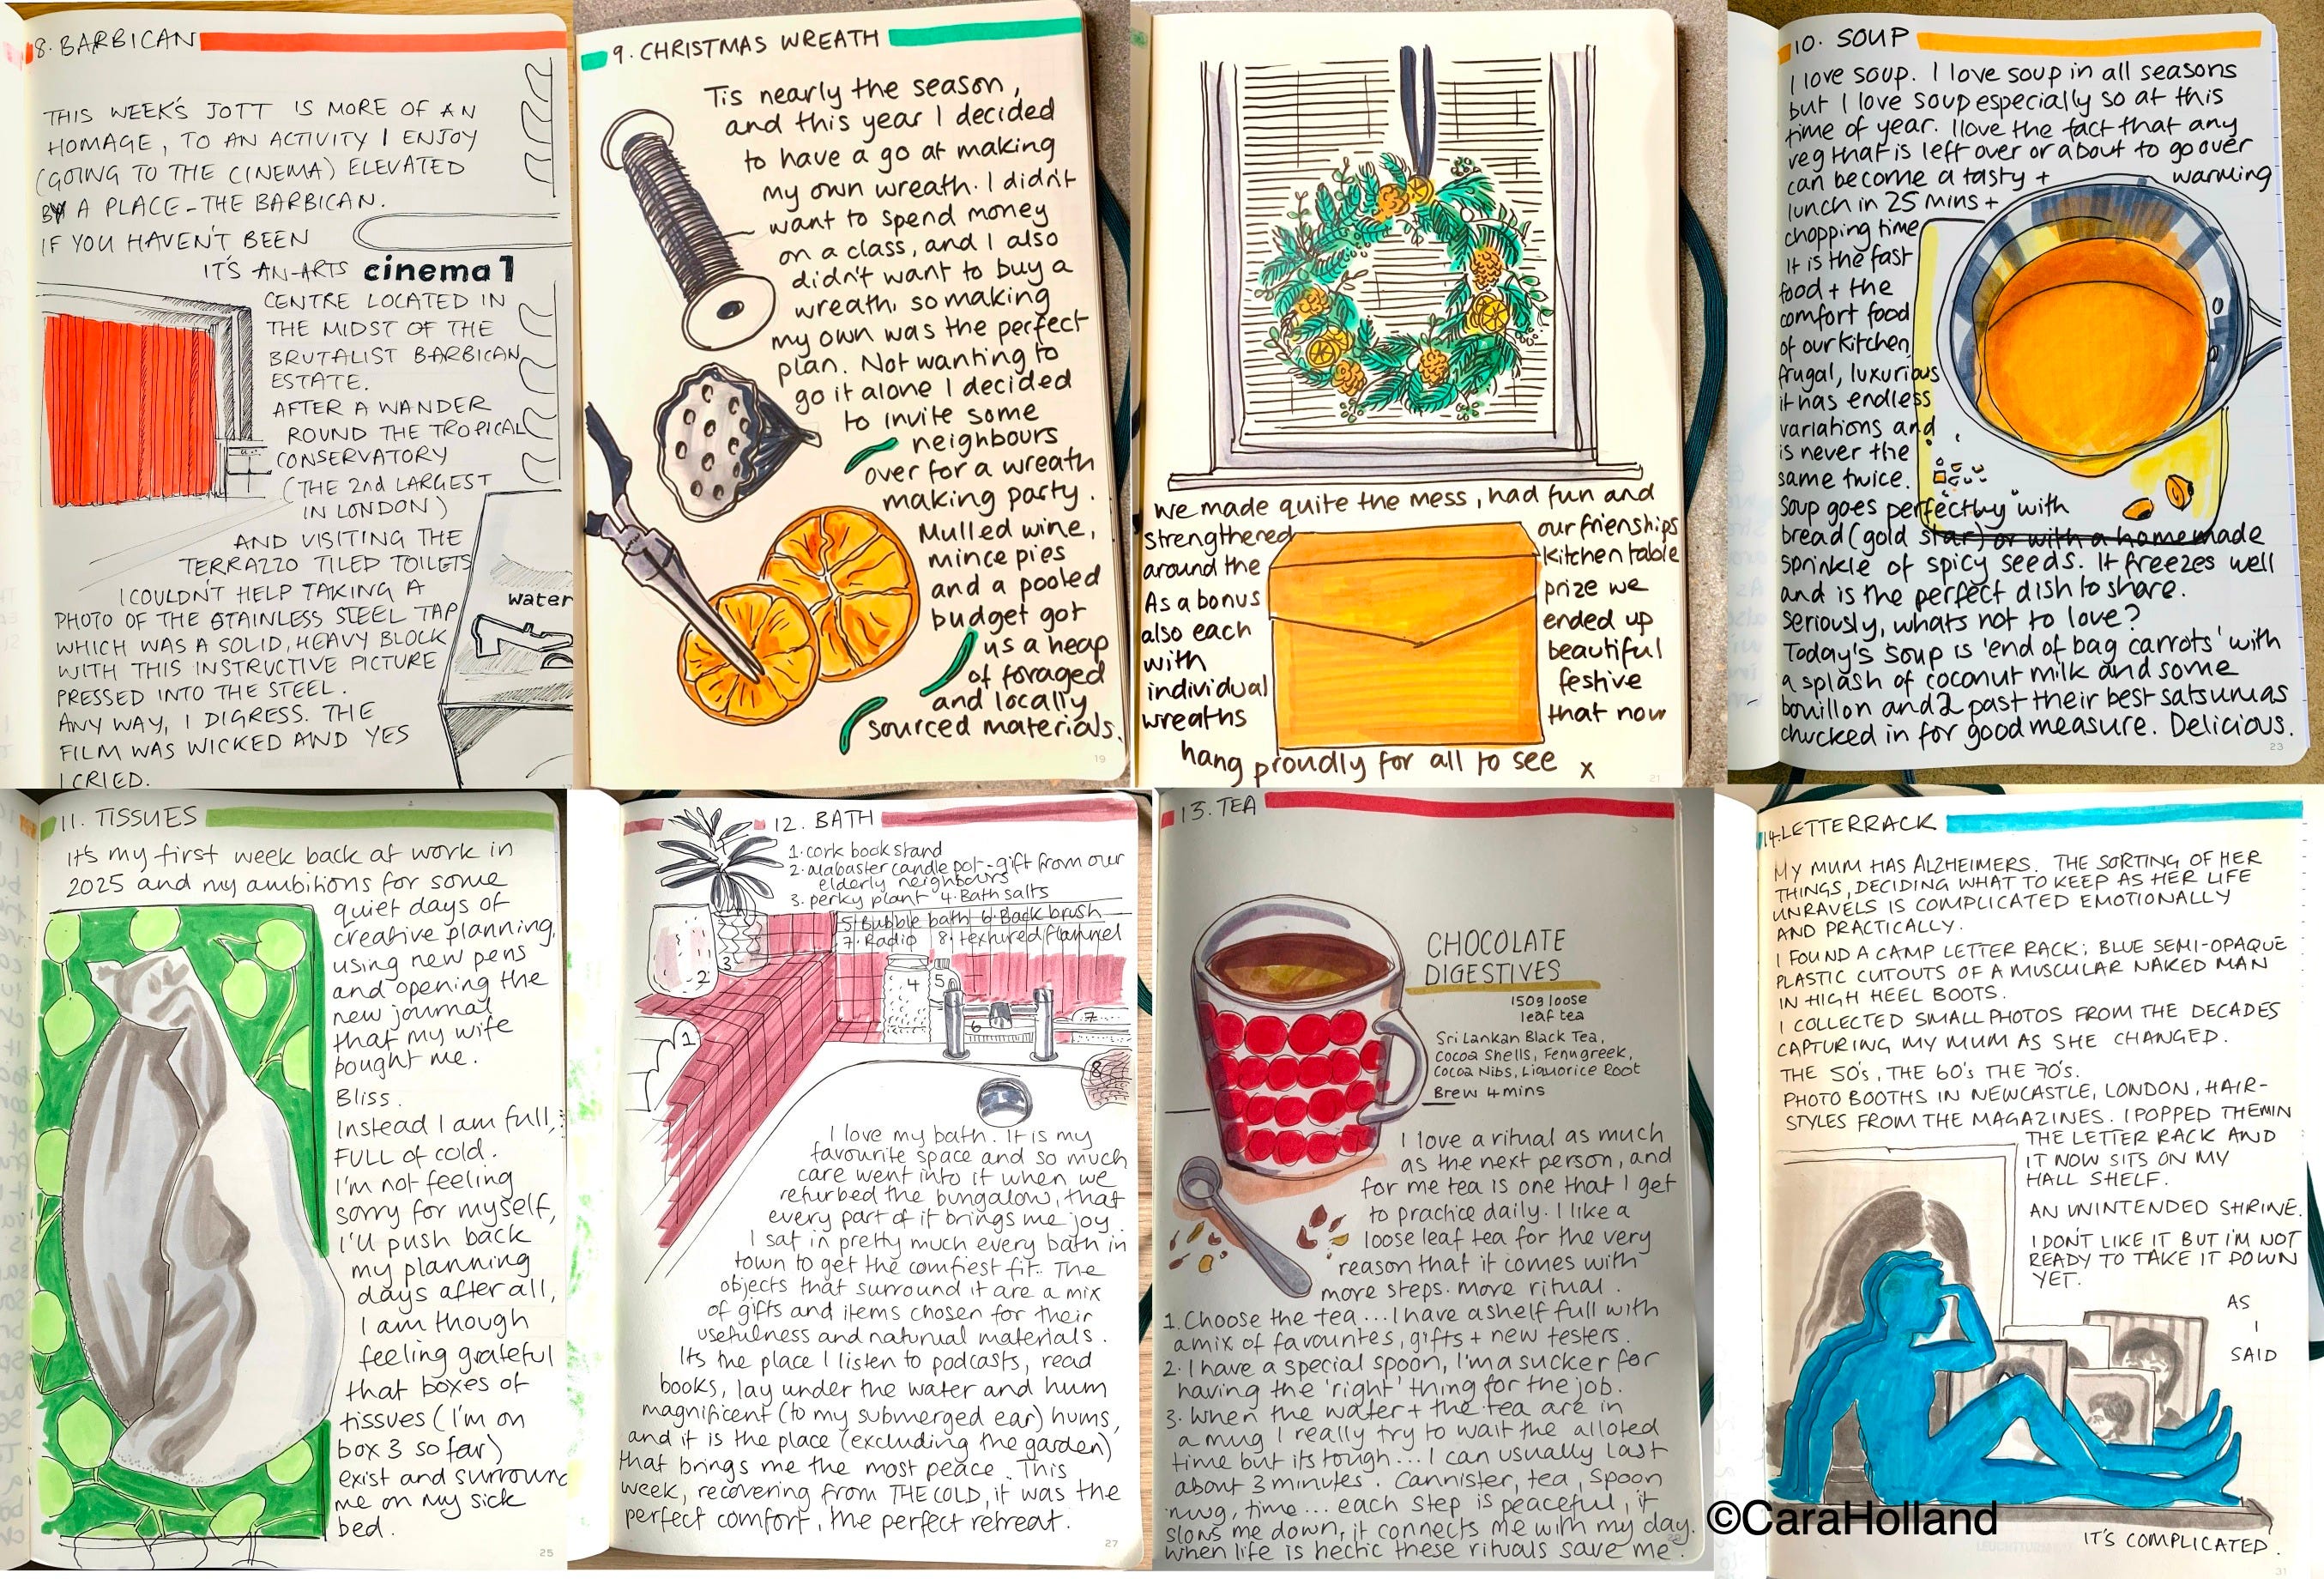 8. BARBICAN
THIS WEEK'S JOTT IS MORE OF AN
HOMAGE, TO AN ACTIVITY I ENJOY
(GOING TO THE CINEMA) ELEVATED
BY A PLACE - THE BARBICAN.
IF YOU HAVEN'T BEEN
IT'S AN ARTS
cinema 1
CENTRE LOCATED IN
THE MIDST OF THE
BRUTALIST BARBICAN
ESTATE.
AFTER A WANDER
ROUND THE TROPICAL
CONSERVATORY
(THE 2nd LARGEST
IN LONDON)
AND VISITING THE
TERRAZZO TILED TOILETS
I COULDN'T HELP TAKING A
PHOTO OF THE STAINLESS STEEL TAP
WHICH WAS A SOLID, HEAVY BLOCK
WITH THIS INSTRUCTIVE PICTURE
PRESSED INTO THE STEEL.
ANY WAY, I DIGRESS. THE
FILM WAS WICKED AND YES
I CRIED.
water
9. CHRISTMAS WREATH
Tis nearly the season,
and this year I decided
to have a go at making
my own wreath. I didn't
want to spend money
on a class, and I also
didn't want to buy a
wreath, so making
my own was the perfect
plan. Not wanting to
go it alone I decided
to invite some
neighbours
over for a wreath
making party.
Mulled wine,
mince pies
and a pooled
budget got
us a heap
of foraged
and locally
sourced materials.
19
we made quite the mess, had fun and
strengthened our frienships
around the kitchen table
As a bonus prize we
also each ended up
with beautiful
individual festive
wreaths that now
hang proudly for all to see x
21
10. SOUP
I love soup. I love soup in all seasons
but I love soup especially so at this
time of year. I love the fact that any
veg that is left over or about to go over
can become a tasty + warming
lunch in 25 mins +
chopping time
It is the fast
food + the
comfort food
of our kitchen,
frugal, luxurious
it has endless
variations and
is never the
same twice.
Soup goes perfectly with
bread (gold star) or with a homemade
sprinkle of spicy seeds. It freezes well
and is the perfect dish to share.
Seriously, whats not to love?
Today's soup is 'end of bag carrots' with
a splash of coconut milk and some
bouillon and 2 past their best satsumas
chucked in for good measure. Delicious.
23
11. TISSUES
It's my first week back at work in
2025 and my ambitions for some
quiet days of
creative planning,
using new pens
and opening the
new journal
that my wife
bought me.
Bliss.
Instead I am full,
FULL of cold.
I'm not feeling
sorry for myself,
I'll push back
my planning
days after all,
I am though
feeling grateful
that boxes of
tissues (I'm on
box 3 so far)
exist and surround
me on my sick
bed.
25
12. BATH
1. cork book stand
2. alabaster candle pot - gift from our
elderly neighbours
3. perky plant 4. Bath salts
5. Bubble bath 6. Back brush
7. Radio 8. textured flannel
1
2
3
4
5
6
7
8
I love my bath. It is my
favourite space and so much
care went into it when we
refurbed the bungalow, that
every part of it brings me joy.
I sat in pretty much every bath in
town to get the comfiest fit. The
objects that surround it are a mix
of gifts and items chosen for their
usefulness and natural materials.
Its the place I listen to podcasts, read
books, lay under the water and hum
magnificent (to my submerged ear) hums,
and it is the place (excluding the garden)
that brings me the most peace. This
week, recovering from THE COLD, it was the
perfect comfort, the perfect retreat.
27
13. TEA
CHOCOLATE
DIGESTIVES
150g loose
leaf tea
Sri Lankan Black Tea,
Cocoa Shells, Fennugreek,
Cocoa Nibs, Liquorice Root
Brew 4 mins
I love a ritual as much
as the next person, and
for me tea is one that I get
to practice daily. I like a
loose leaf tea for the very
reason that it comes with
more steps. more ritual.
1. Choose the tea... I have a shelf full with
a mix of favourites, gifts + new testers.
2. I have a special spoon, I'm a sucker for
having the 'right' thing for the job.
3. When the water + the tea are in
a mug I really try to wait the alloted
time but its tough... I can usually last
about 3 minutes. Cannister, tea, spoon
mug, time... each step is peaceful, it
slows me down, it connects me with my day.
When life is hectic these rituals save me.
14. LETTERRACK
MY MUM HAS ALZHEIMERS. THE SORTING OF HER
THINGS, DECIDING WHAT TO KEEP AS HER LIFE
UNRAVELS IS COMPLICATED EMOTIONALLY
AND PRACTICALLY.
I FOUND A CAMP LETTER RACK; BLUE SEMI-OPAQUE
PLASTIC CUTOUTS OF A MUSCULAR NAKED MAN
IN HIGH HEEL BOOTS.
I COLLECTED SMALL PHOTOS FROM THE DECADES
CAPTURING MY MUM AS SHE CHANGED.
THE 50's, THE 60's THE 70's.
PHOTO BOOTHS IN NEWCASTLE, LONDON, HAIR-
STYLES FROM THE MAGAZINES. I POPPED THEM IN
THE LETTER RACK AND
IT NOW SITS ON MY
HALL SHELF.
AN UNINTENDED SHRINE.
I DON'T LIKE IT BUT I'M NOT
READY TO TAKE IT DOWN
YET.
AS
I
SAID
IT'S COMPLICATED.
31
©CaraHolland